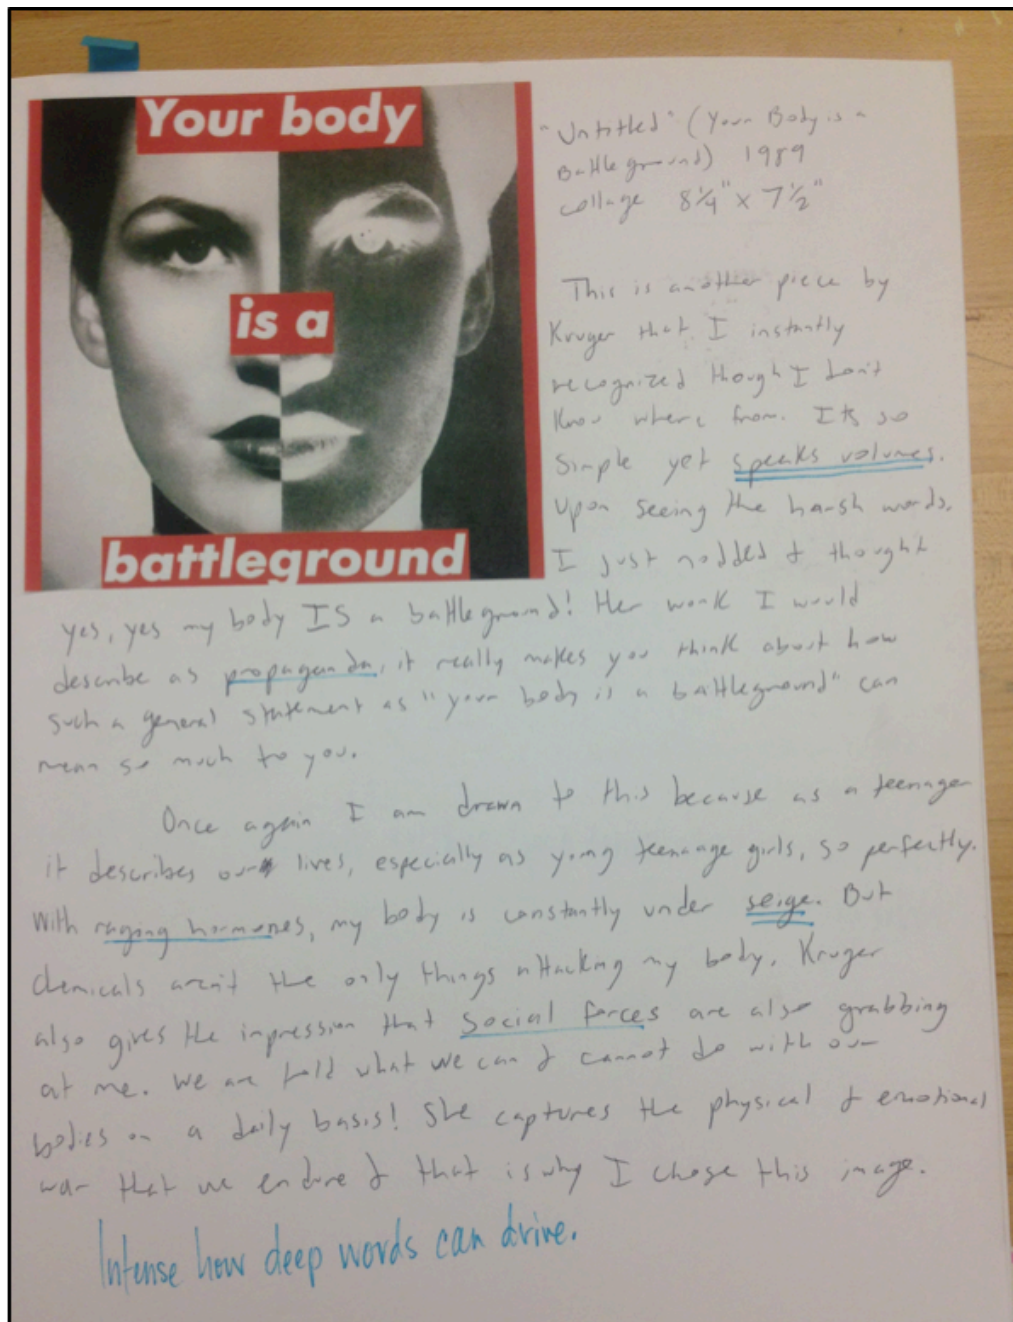 Your body
is a
battleground
"Untitled" (Your Body is a
Battleground) 1989
collage 8 1/4" x 7 1/2"
This is another piece by
Kruger that I instantly
recognized though I don't
know where from. Its so
simple yet speaks volumes.
Upon seeing the harsh words,
I just nodded & thought
yes, yes my body IS a battleground! Her work I would
describe as propaganda, it really makes you think about how
such a general statement as "your body is a battleground" can
mean so much to you.
Once again I am drawn to this because as a teenager
it describes our lives, especially as young teenage girls, so perfectly.
With raging hormones, my body is constantly under seige. But
chemicals aren't the only things attacking my body. Kruger
also gives the impression that social forces are also grabbing
at me. We are told what we can & cannot do with our
bodies on a daily basis! She captures the physical & emotional
war that we endure & that is why I chose this image.
Intense how deep words can drive.